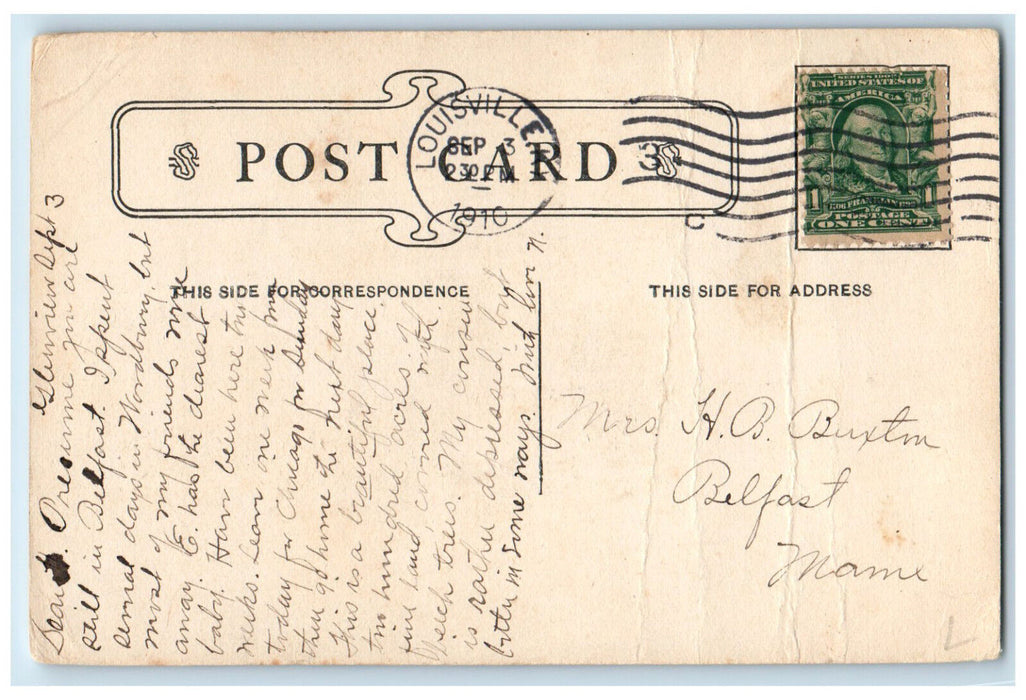 POST CARD
LOUISVILLE
SEP 3
2 30 PM
1910
3
C
SERIES 1902
UNITED STATES OF
AMERICA
1 1
FRANKLIN
POSTAGE
ONE CENT
THIS SIDE FOR CORRESPONDENCE
THIS SIDE FOR ADDRESS
Glenview Sept 3
Dear Presume you are
still in Belfast. I spent
several days in Woodbury, but
most of my friends were
away. E. has the dearest
baby. Have been here two
weeks. Leave one week from
today for Chicago for Sunday
then go home the next day.
This is a beautiful place.
two hundred acres of
fine land, covered with
beech trees. My cousin
is rather depressed, but
better in some ways. Much love N.
Mrs. H. B. Buxton
Belfast
Maine